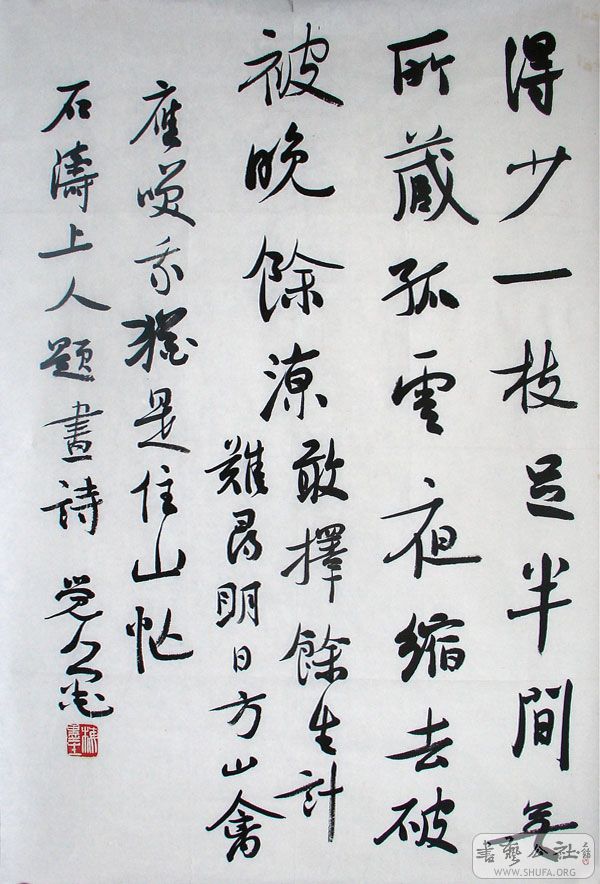 得少一枝足半間无
所藏孤雲夜縮去破
被晚餘涼敢擇餘生計
難尋明日方山禽
應咲我猶是住山忙
石濤上人題畫詩
書藝公社
WWW.SHUFA.ORG